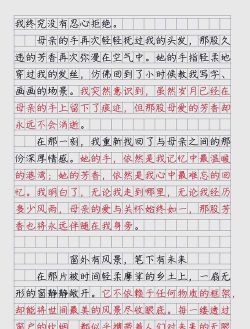 我终究没有忍心拒绝。
母亲的手再次轻轻抚过我的头发，那股久
违的芳香再次弥漫在空气中。她的手指轻柔地
穿过我的发丝，仿佛回到了小时候教我写字、
画画的场景。我突然意识到，虽然岁月已经在
母亲的手上留下了痕迹，但那股母爱的芳香却
永远不会消逝。
在那一刻，我重新找回了与母亲之间的那
份深厚情感。她的手，依然是我记忆中最温暖
的港湾；她的芳香，依然是我心中最难忘的回
忆。我明白了，无论我走到哪里，无论我经历
多少风雨，母亲的爱与关怀始终如一，那股芳
香也将永远伴随在我身旁。
窗外有风景，笔下有未来
在那片被时间轻柔摩挲的乡土上，一扇无
形的窗静静敞开。它不依赖于任何物质的框架，
却能将世间最美的风景尽收眼底。每一缕透过
窗户的